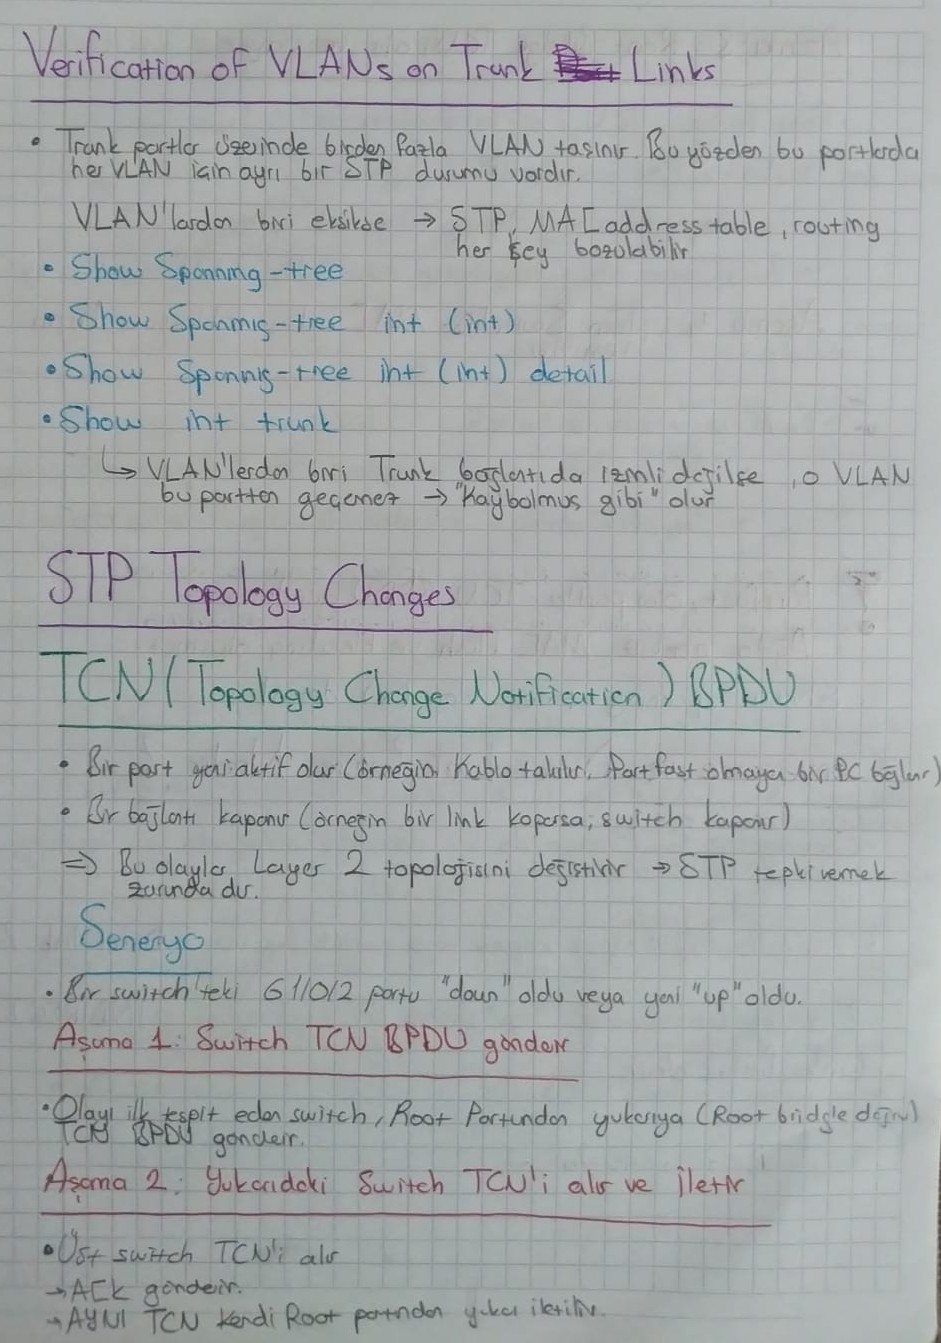 Verification of VLANs on Trunk Links
• Trunk portlar üzerinde birden fazla VLAN taşınır. Bu yüzden bu portlarda
her VLAN için ayrı bir STP durumu vardır.
VLAN'lardan biri eksikse → STP, MAC address table, routing
her şey bozulabilir
• Show Spanning-tree
• Show Spanning-tree int (int)
• Show Spanning-tree int (int) detail
• Show int trunk
↳ VLAN'lerden biri Trunk bağlantıda izinli değilse, o VLAN
bu porttan geçemez → "Kaybolmuş gibi" olur
STP Topology Changes
TCN (Topology Change Notification) BPDU
• Bir port yeni aktif olur (örneğin Kablo takılır, Portfast olmayan bir PC bağlar)
• Bir bağlantı kapanır (örneğin bir link koparsa, switch kapanır)
⇒ Bu olaylar Layer 2 topolojisini değiştirir → STP tepki vermek
zorundadır.
Seneryo
• Bir switch'teki G1/0/2 portu "down" oldu veya yeni "up" oldu.
Aşama 1: Switch TCN BPDU gönderir
• Olayı ilk tespit eden switch, Root Portundan yukarıya (Root bridge doğru)
TCN BPDU gönderir.
Aşama 2: Yukarıdaki Switch TCN'i alır ve iletir
• Üst switch TCN'i alır
→ ACK gönderir.
→ AYNI TCN kendi Root portundan yukarı iletilir.